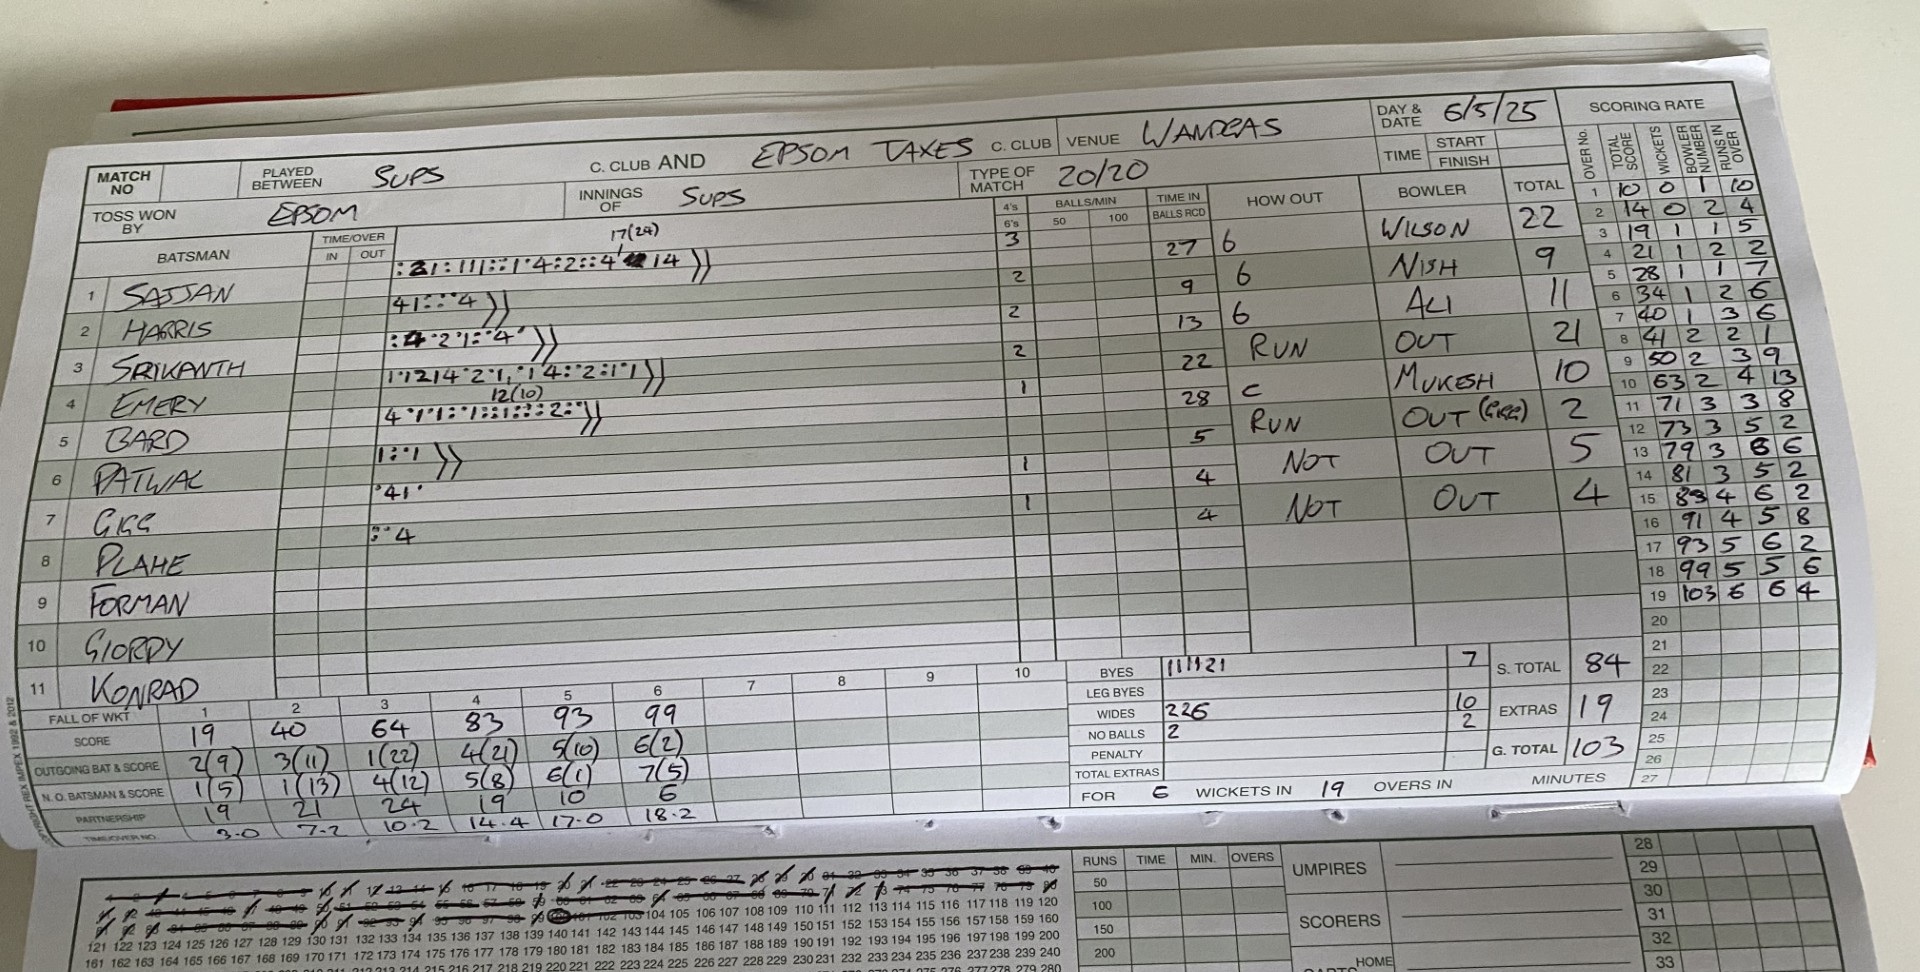 MATCH NO PLAYED BETWEEN SUPS C. CLUB AND EPSOM TAXES C. CLUB VENUE WANDGAS DAY & DATE 6/5/25 SCORING RATE
TOSS WON BY EPSOM INNINGS OF SUPS TYPE OF MATCH 20/20 TIME START FINISH
OVER No. TOTAL SCORE WICKETS BOWLER NUMBER RUNS IN OVER
BATSMAN TIME/OVER IN OUT 4's 6's BALLS/MIN 50 100 TIME IN BALLS RCD HOW OUT BOWLER TOTAL
17(24)
1 SAJJAN 3 27 6 WILSON 22
2 HARRIS 41:··4 2 9 6 NISH 9
3 SRIKANTH 2 13 6 ALI 11
4 EMERY 2 22 RUN OUT 21
12(10)
5 BARD 1 28 C MUKESH 10
6 PATWAL 1:·1 5 RUN OUT (GIGG) 2
7 GIGG ·41· 1 4 NOT OUT 5
8 PLAHE :·4 1 4 NOT OUT 4
9 FORMAN
10 GIORDY
11 KONRAD
1 10 0 1 10
2 14 0 2 4
3 19 1 1 5
4 21 1 2 2
5 28 1 1 7
6 34 1 2 6
7 40 1 3 6
8 41 2 2 1
9 50 2 3 9
10 63 2 4 13
11 71 3 3 8
12 73 3 5 2
13 79 3 6 6
14 81 3 5 2
15 83 4 6 2
16 91 4 5 8
17 93 5 6 2
18 99 5 5 6
19 103 6 6 4
20
21
22
23
24
25
26
27
FALL OF WKT 1 2 3 4 5 6 7 8 9 10
SCORE 19 40 64 83 93 99
OUTGOING BAT & SCORE 2(9) 3(11) 1(22) 4(21) 5(10) 6(2)
N. O. BATSMAN & SCORE 1(5) 1(13) 4(12) 5(8) 6(1) 7(5)
PARTNERSHIP 19 21 24 19 10 6
TIME/OVER NO. 3.0 7.2 10.2 14.4 17.0 18.2
BYES 111121 7 S. TOTAL 84
LEG BYES
WIDES 226 10 EXTRAS 19
NO BALLS 2 2
PENALTY G. TOTAL 103
TOTAL EXTRAS
FOR 6 WICKETS IN 19 OVERS IN MINUTES
REX IMPEX 1992 & 2012
RUNS TIME MIN. OVERS UMPIRES
50
100 SCORERS
150
200 HOME
28
29
30
31
32
33
104 105 106 107 108 109 110 111 112 113 114 115 116 117 118 119 120
121 122 123 124 125 126 127 128 129 130 131 132 133 134 135 136 137 138 139 140 141 142 143 144 145 146 147 148 149 150 151 152 153 154 155 156 157 158 159 160
161 162 163 164 165 166 167 168 169 170 171 172 173 174 175 176 177 178 179 180 181 182 183 184 185 186 187 188 189 190 191 192 193 194 195 196 197 198 199 200